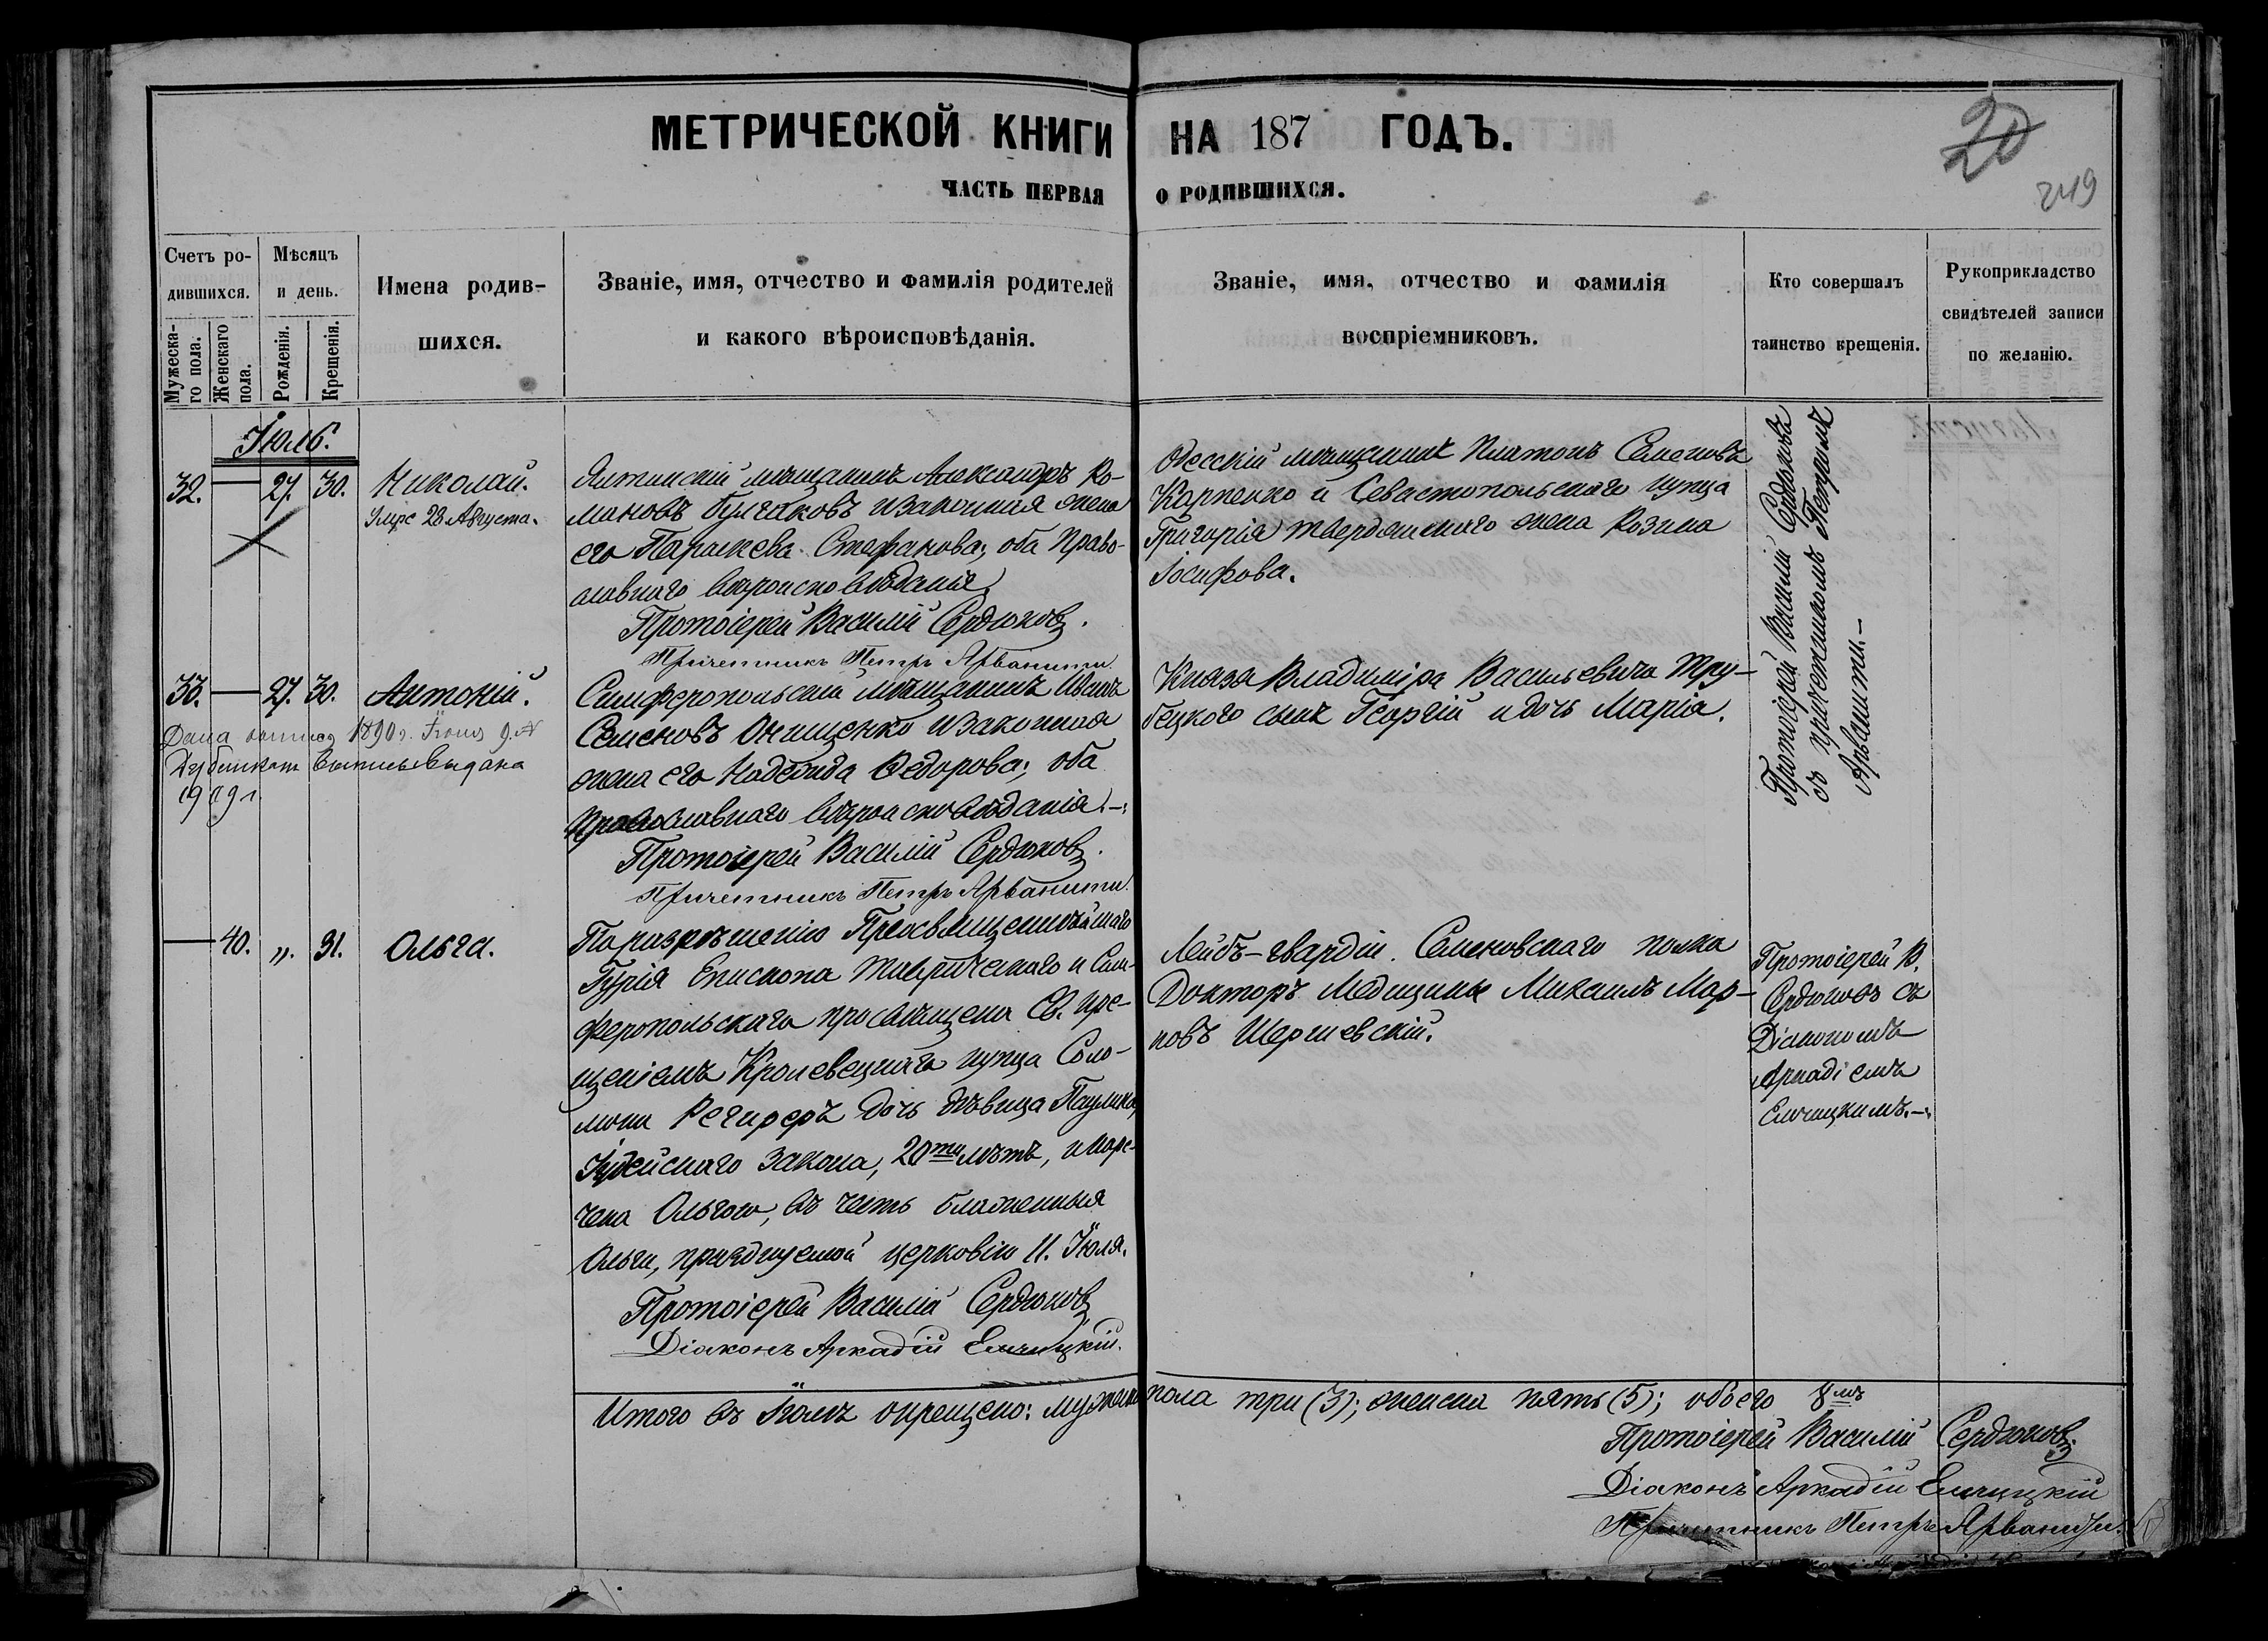 МЕТРИЧЕСКОЙ КНИГИ НА 187 ГОДЪ.
20
249
ЧАСТЬ ПЕРВАЯ О РОДИВШИХСЯ.
Счетъ ро-
дившихся.
Мужеска-
го пола.
Женскаго
пола.
Мѣсяцъ
и день.
Рожденія.
Крещенія.
Имена родив-
шихся.
Званіе, имя, отчество и фамилія родителей
и какого вѣроисповѣданія.
Званіе, имя, отчество и фамилія
воспріемниковъ.
Кто совершалъ
таинство крещенія.
Рукоприкладство
свидѣтелей записи
по желанію.
Іюль.
32. — 27. 30. Николай.
Умре 28 Августа.
Ялтинскій мѣщанинъ Александръ Ро-
мановъ Булгаковъ и законная жена
его Параскева Стефанова; оба право-
славнаго вѣроисповѣданія
Протоіерей Василій Сердюковъ.
Причетникъ Петръ Арванити.
Одесскій мѣщанинъ Платонъ Семеновъ
Карпенко и Севастопольскаго купца
Григорія Твердомскаго жена Розина
Іосифова.
Протоіерей Василій Сердюковъ
съ причетникомъ Петромъ
Арванити.—
33. — 27. 30. Антоній.
Дана 1890 г. Іюня 9. №
выпись выдана
1909 г.
Симферопольскій мѣщанинъ Иванъ
Семеновъ Онищенко и законная
жена его Надежда Ѳедорова; оба
православнаго вѣроисповѣданія.—
Протоіерей Василій Сердюковъ.
Причетникъ Петръ Арванити.
Князя Владиміра Васильевича Тру-
бецкого сынъ Георгій и дочь Марія.
— 40. „. 31. Ольга.
По разрѣшенію Преосвященнѣйшаго
Гурія Епископа Таврическаго и Сим-
феропольскаго просвѣщена Св. Кре-
щеніемъ Кролевецкаго купца Соло-
мона Регирера дочь дѣвица Паулина,
Іудейскаго закона, 20ти лѣтъ, и наре-
чена Ольгою, въ честь блаженныя
Ольги, празднуемой церковію 11. Іюля.
Протоіерей Василій Сердюковъ
Діаконъ Аркадій Ельчицкій.
Лейбъ-гвардіи Семеновскаго полка
Докторъ Медицины Михаилъ Мар-
ковъ Шершевскій.
Протоіерей В.
Сердюковъ съ
Діакономъ
Аркадіемъ
Ельчицкимъ.—
Итого въ Іюлѣ окрещено: мужска пола три (3); женска пять (5); обоего 8мь
Протоіерей Василій Сердюковъ
Діаконъ Аркадій Ельчицкій
Причетникъ Петръ Арванити.